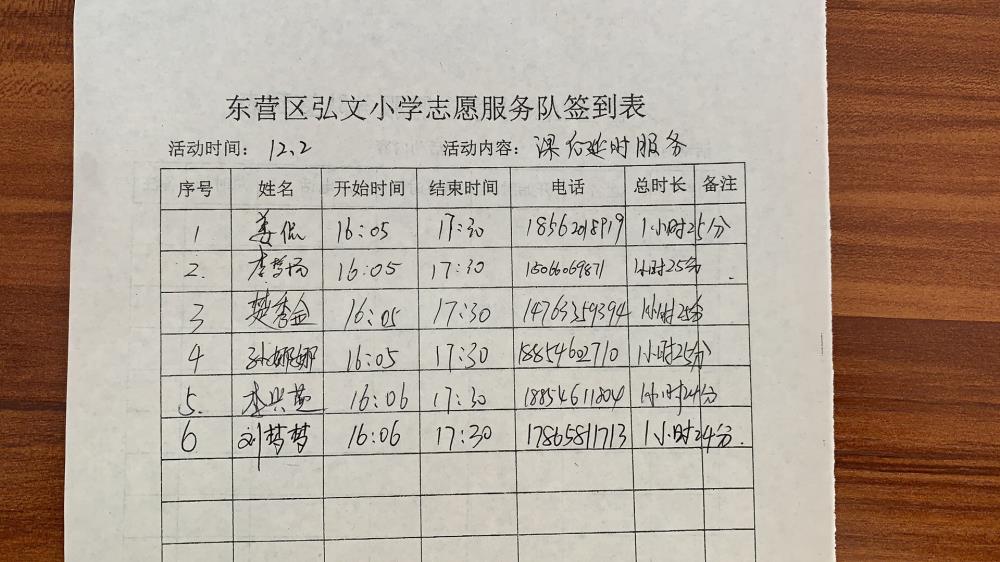 东营区弘文小学志愿服务队签到表
活动时间: 12.2 活动内容: 课后延时服务
序号 姓名 开始时间 结束时间 电话 总时长 备注
1 姜侃 16:05 17:30 18562018919 1小时25分
2. 16:05 17:30 15066069871 1小时25分
3 楚秀金 16:05 17:30 14763359394 1小时25分
4 孙娜娜 16:05 17:30 18854602710 1小时25分
5. 16:06 17:30 18854611804 1小时24分
6 刘梦梦 16:06 17:30 17865811713 1小时24分.